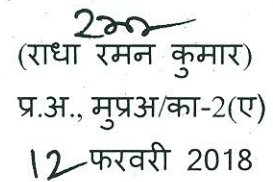 (राधा रमन कुमार)
प्र.अ., मुप्रअ/का-2(ए)
12 फरवरी 2018